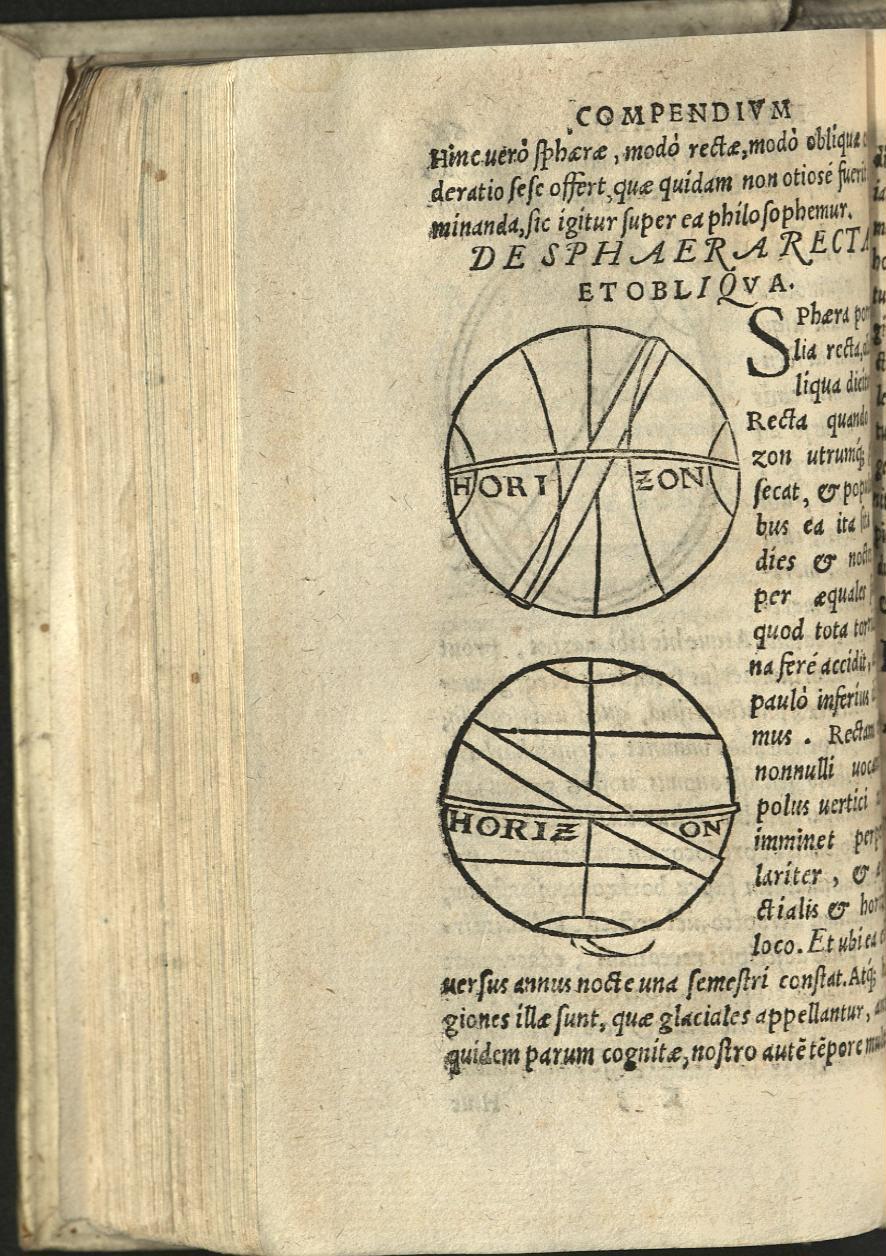 COMPENDIVM
Hinc uerò sphæræ, modò rectæ, modò obliquæ
deratio sese offert, quæ quidam non otiosé fuerit
minanda, sic igitur super ea philosophemur.
DE SPHAERA RECTA
ET OBLIQVA.
SPhæra
lia recta,
liqua
Recta quando
zon utrumq́;
secat, &
bus ea ita
dies &
per æquales
quod tota
na feré accidit,
paulò inferius
mus. Rectam
nonnulli
polus uertici
imminet
lariter, &
ctialis &
loco. Et ubi ea
uersus annus nocte una semestri constat. Atq́;
giones illæ sunt, quæ glaciales appellantur,
quidem parum cognitæ, nostro autē tēpore
HORI ZON
HORIZ ON